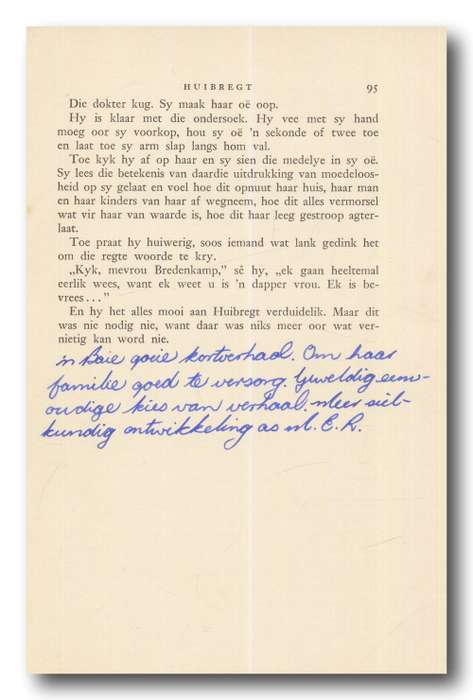 HUIBREGT 95
Die dokter kug. Sy maak haar oë oop.
Hy is klaar met die ondersoek. Hy vee met sy hand
moeg oor sy voorkop, hou sy oë 'n sekonde of twee toe
en laat toe sy arm slap langs hom val.
Toe kyk hy af op haar en sy sien die medelye in sy oë.
Sy lees die betekenis van daardie uitdrukking van moedeloos-
heid op sy gelaat en voel hoe dit opnuut haar huis, haar man
en haar kinders van haar af wegneem, hoe dit alles vermorsel
wat vir haar van waarde is, hoe dit haar leeg gestroop agter-
laat.
Toe praat hy huiwerig, soos iemand wat lank gedink het
om die regte woorde te kry.
„Kyk, mevrou Bredenkamp,” sê hy, „ek gaan heeltemal
eerlik wees, want ek weet u is 'n dapper vrou. Ek is be-
vrees . . .”
En hy het alles mooi aan Huibregt verduidelik. Maar dit
was nie nodig nie, want daar was niks meer oor wat ver-
nietig kan word nie.
'n Baie goeie kortverhaal. Om haar
familie goed te versorg. Geweldig eenv-
oudige kies van verhaal. Meer siel-
kundig ontwikkeling as nl. E.R.